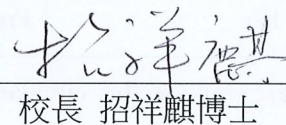 招祥麒
校長 招祥麒博士